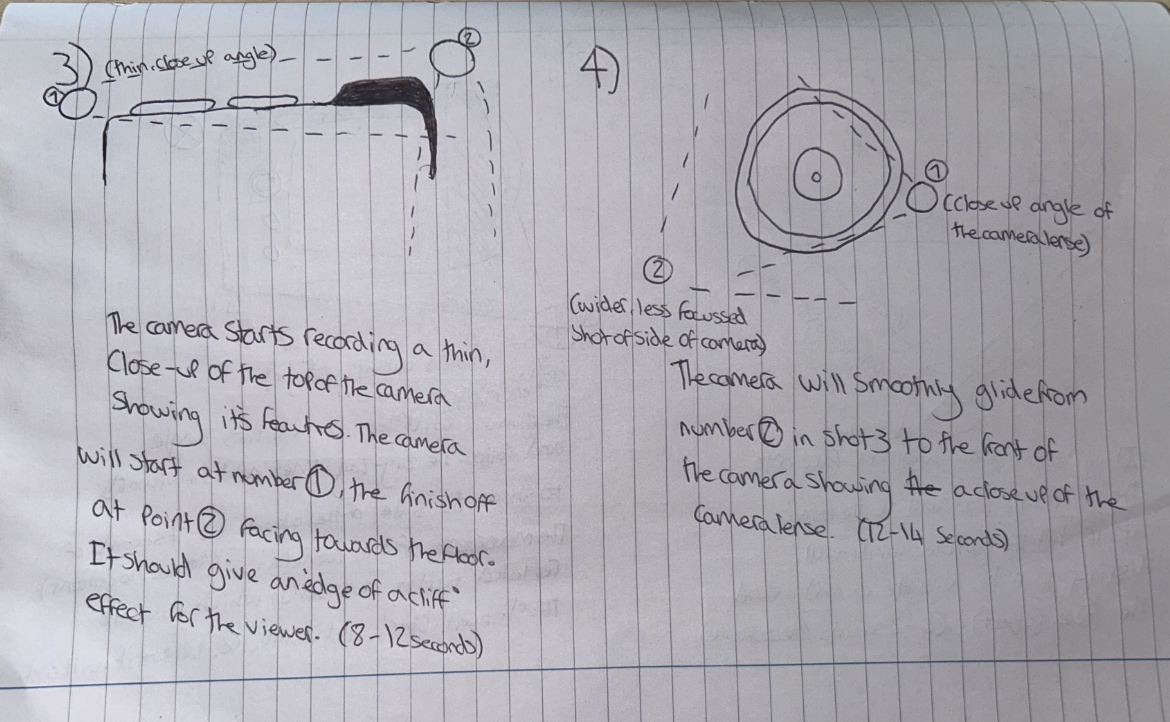 3) (thin, close up angle)
②
①
The camera starts recording a thin,
Close-up of the top of the camera
showing it's featutres. The camera
will start at number ①, the finish off
at Point ② facing towards the floor.
It should give an "edge of a cliff"
effect for the viewer. (8-12 seconds)
4)
①
(close up angle of
the camera lense)
②
(wider, less focussed
shot of side of camera)
The camera will smoothly glide from
number ② in shot 3 to the front of
the camera showing the a close up of the
camera lense. (12-14 seconds)